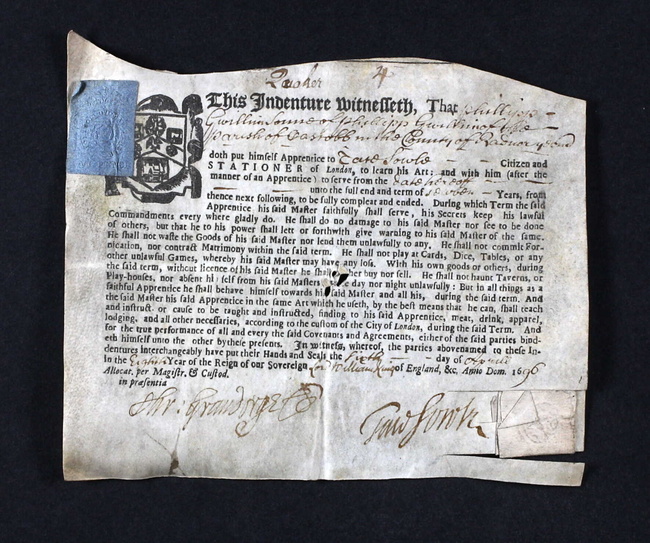 Quaker 4
This Indenture witnesseth, That Phillipp
Gwillim Sonne of Phillipp Gwillim of the
Parish of in the County of Radnor
doth put himself Apprentice to Tace Sowle Citizen and
STATIONER of London, to learn his Art: and with him (after the
manner of an Apprentice) to serve from the date hereof
unto the full end and term of Seaven Years, from
thence next following, to be fully compleat and ended. During which Term the said
Apprentice his said Master faithfully shall serve, his Secrets keep his lawful
Commandments every where gladly do. He shall do no damage to his said Master nor see to be done
of others, but that he to his power shall lett or forthwith give warning to his said Master of the same.
He shall not waste the Goods of his said Master nor lend them unlawfully to any. He shall not commit For-
nication, nor contract Matrimony within the said term. He shall not play at Cards, Dice, Tables, or any
other unlawful Games, whereby his said Master may have any loss. With his own goods or others, during
the said term, without licence of his said Master he shall buy nor sell. He shall not haunt Taverns, or
Play-houses, nor absent himself from his said Masters day nor night unlawfully: But in all things as a
faithful Apprentice he shall behave himself towards his said Master and all his, during the said term. And
the said Master his said Apprentice in the same Art which he useth, by the best means that he can, shall teach
and instruct, or cause to be taught and instructed, finding to his said Apprentice, meat, drink, apparel,
lodging, and all other necessaries, according to the custom of the City of London, during the said Term. And
for the true performance of all and every the said Covenants and Agreements, either of the said parties bind-
eth himself unto the other by these presents. In witness, whereof, the parties abovenamed to these In-
dentures interchangeably have put their Hands and Seals the Sixth day of Aprill
In the Eighth Year of the Reign of our Sovereign Lord William King of England, &c. Anno Dom. 1696
Allocat. per Magistr. & Custod.
in præsentia
Chr. Grandorge Tace Sowle